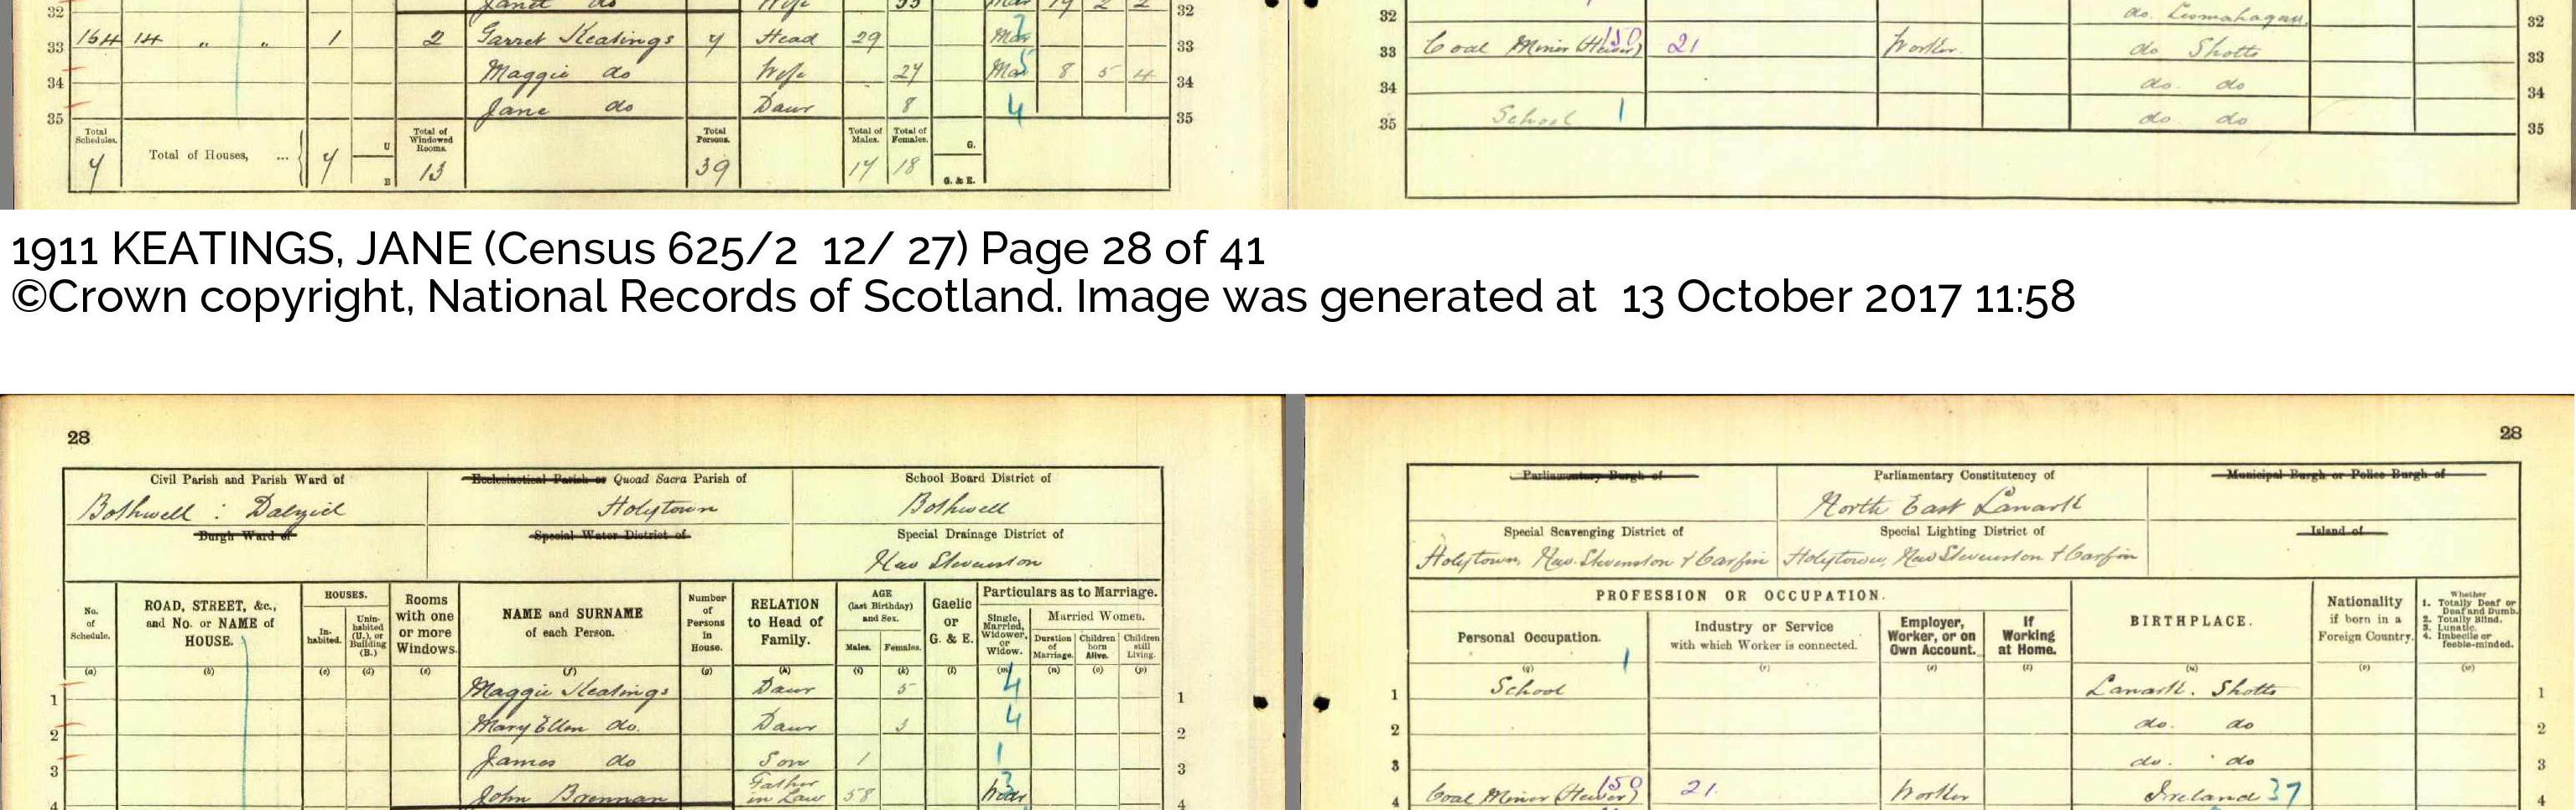 32 Janet do Wife 35 Mar 19 2 2 32
33 164 14 " " 1 2 Garret Keatings 7 Head 29 Mar 33
34 Maggie do Wife 27 Mar 8 5 4 34
35 Jane do Daur 8 4 35
Total Schedules. 7 Total of Houses, ... 7 U B Total of Windowed Rooms. 13 Total Persons. 39 Total of Males. 17 Total of Females. 18 G. G. & E.
32 do. Lesmahagow 32
33 Coal Miner (Hewer) 150 21 Worker. do Shotts 33
34 do. do 34
35 School 1 do do 35
1911 KEATINGS, JANE (Census 625/2 12/ 27) Page 28 of 41
©Crown copyright, National Records of Scotland. Image was generated at 13 October 2017 11:58
28
Civil Parish and Parish Ward of
Bothwell : Dalziel
Burgh Ward of
Ecclesiastical Parish or Quoad Sacra Parish of
Holytown
Special Water District of
School Board District of
Bothwell
Special Drainage District of
New Stevenston
No. of Schedule. (a)
ROAD, STREET, &c., and No. or NAME of HOUSE. (b)
HOUSES.
Inhabited. (c)
Uninhabited (U.), or Building (B.) (d)
Rooms with one or more Windows. (e)
NAME and SURNAME of each Person. (f)
Number of Persons in House. (g)
RELATION to Head of Family. (h)
AGE (last Birthday) and Sex.
Males. (i)
Females. (k)
Gaelic or G. & E. (l)
Particulars as to Marriage.
Single, Married, Widower, or Widow. (m)
Married Women.
Duration of Marriage. (n)
Children born Alive. (o)
Children still Living. (p)
1 Maggie Keatings Daur 5 4 1
2 Mary Ellen do. Daur 3 4 2
3 James do Son 1 1 3
4 John Brennan Father in Law 58 4
28
Parliamentary Burgh of
Parliamentary Constitutency of
North East Lanark
Municipal Burgh or Police Burgh of
Special Scavenging District of
Holytown, New Stevenston & Carfin
Special Lighting District of
Holytown, New Stevenston & Carfin
Island of
PROFESSION OR OCCUPATION.
Personal Occupation. (q)
Industry or Service with which Worker is connected. (r)
Employer, Worker, or on Own Account. (s)
If Working at Home. (t)
BIRTHPLACE. (u)
Nationality if born in a Foreign Country. (v)
Whether
1. Totally Deaf or Deaf and Dumb.
2. Totally Blind.
3. Lunatic.
4. Imbecile or feeble-minded.
(w)
1 School 1 Lanark. Shotts 1
2 do. do 2
3 do. do 3
4 Coal Miner (Hewer) 150 21. Worker Ireland 37 4